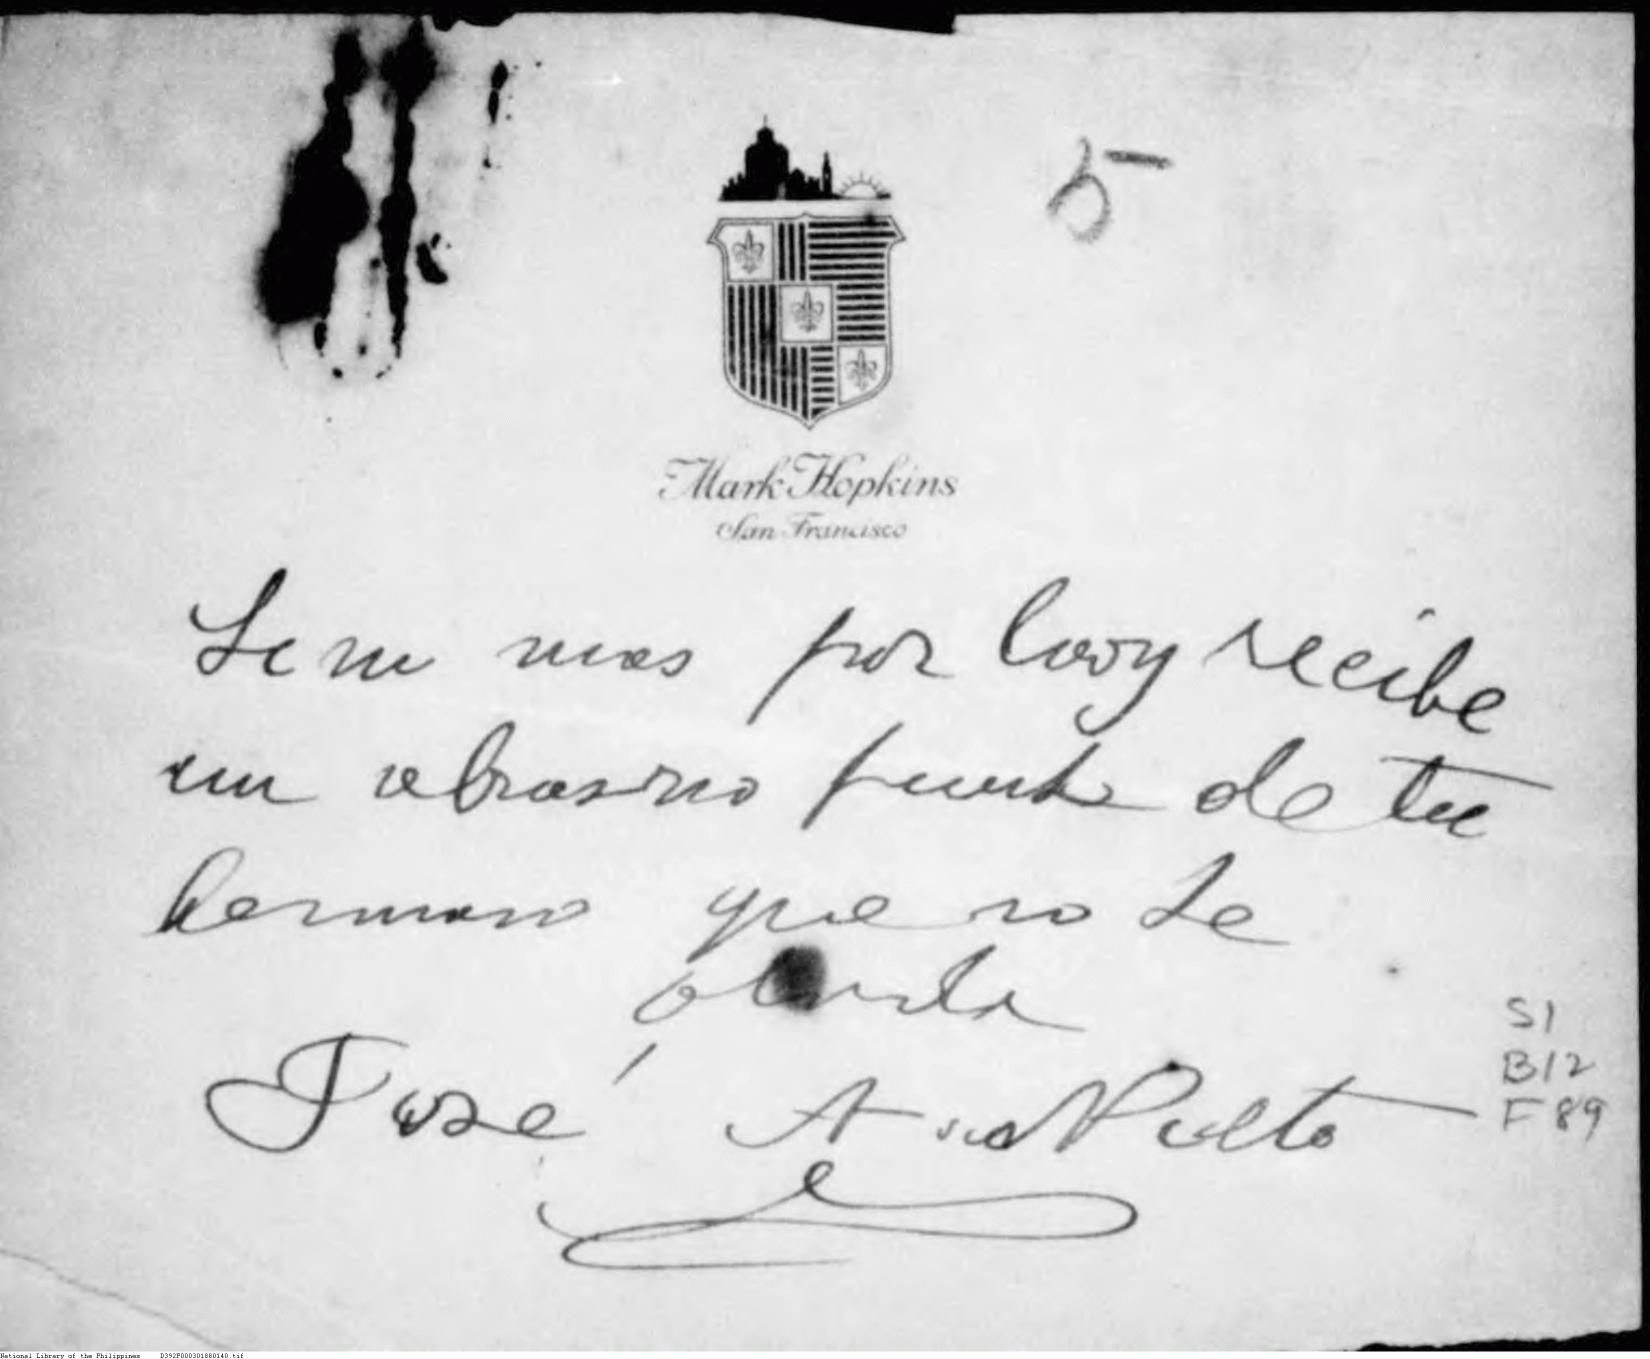 5
Mark Hopkins
San Francisco
Sin mas por hoy recibe
un abraso fuerte de tu
hermano que no te
olvida
José
S1
B12
F89
National Library of the Philippines D392P000301880140.tif